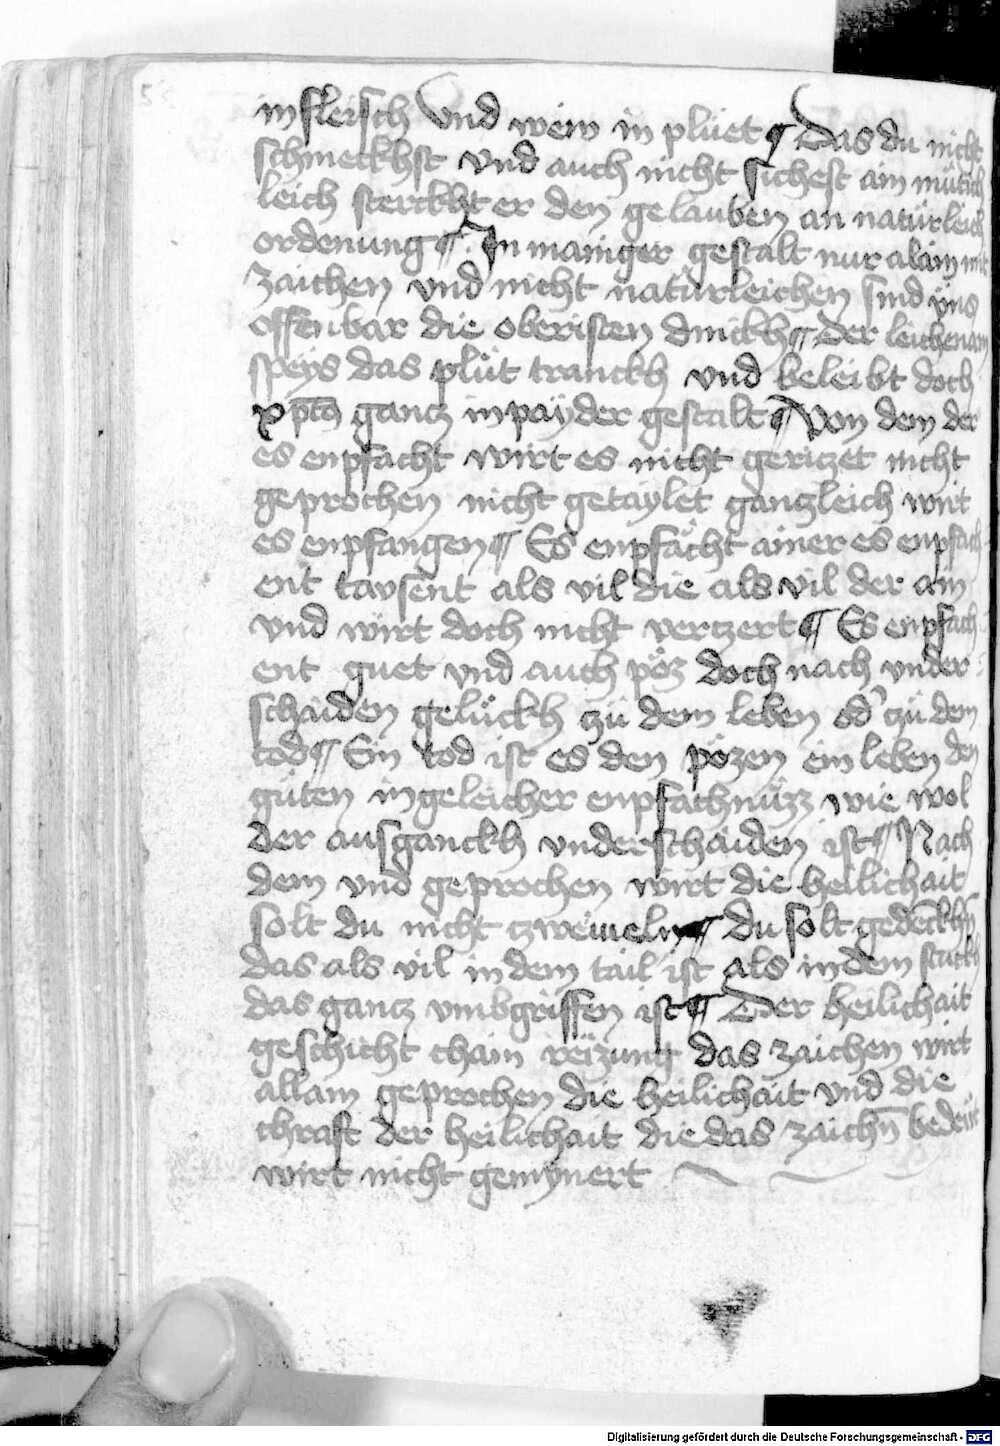 in fleisch Vnd wein in plüet ¶ Das du nicht
schmeckhst vnd auch nicht sichest ain mütich
leich sterckht er den gelauben an natürleich
ordenung ¶ In maniger gestalt nur alain mit
zaichen vnd nicht natürleichen sind üns
offenbar die obristen dinckh ¶ Der leichenam
speÿs das plüt tranckh vnd beleibt doch
xp̄s gantz in paÿder gestalt ¶ Von dem der
es enpfächt wirt es nicht geritzet nicht
geprochen nicht getaÿlet gantzleich wirt
es enpfangen ¶ Es enpfächt ainer es enpfach
ent taüsent als vil die als vil der ain
vnd wirt doch nicht vertzert ¶ Es enpfach
ent guet vnd auch pöz doch nach vnder
schaiden gelückh tzü dem leben od' tzü dem
tod ¶ Ein tod ist es den pözen ein leben den
güten in geleicher enpfachnüzz wie wol
der ausganckh vnderschaiden ist ¶ Nach
dem vnd geprochen wirt die heilichait
solt du nicht tzweiueln ¶ du solt gedēckhn̄
das als vil in dem tail ist als in dem stückh
das gantz vmbgriffen ist ¶ Der heilichait
geschicht chain reizung das zaichen wirt
allain geprochen die heilichait vnd die
chraft der heilichait die das zaichn̄ bedeüt
wirt nicht gemynert
Digitalisierung gefördert durch die Deutsche Forschungsgemeinschaft - DFG